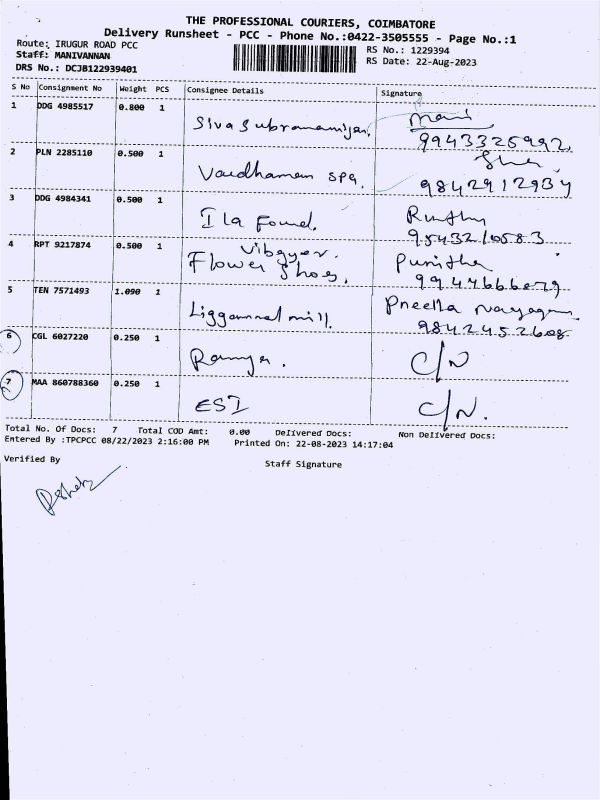 THE PROFESSIONAL COURIERS, COIMBATORE
Delivery Runsheet - PCC - Phone No.:0422-3505555 - Page No.:1
Route: IRUGUR ROAD PCC
RS No.: 1229394
Staff: MANIVANNAN
RS Date: 22-Aug-2023
DRS No.: DCJB122939401
S No Consignment No Weight PCS Consignee Details Signature
1 DDG 4985517 0.800 1 Mani
Siva Subramaniyan. 9943325992
2 PLN 2285110 0.500 1
Vardhaman Spg. 9842912934
3 DDG 4984341 0.500 1
Ila Found. 9543210583
4 RPT 9217874 0.500 1 Vibgyor. Punitha
Flower Shos. 9944666079
5 TEN 7571493 1.090 1 Preetta nayagam
mill. 9842452608
6 CGL 6027220 0.250 1
Ramya. C/N
7 MAA 860788360 0.250 1
ESI C/N.
Total No. Of Docs: 7 Total COD Amt: 0.00 Delivered Docs: Non Delivered Docs:
Entered By :TPCPCC 08/22/2023 2:16:00 PM Printed On: 22-08-2023 14:17:04
Verified By
Staff Signature